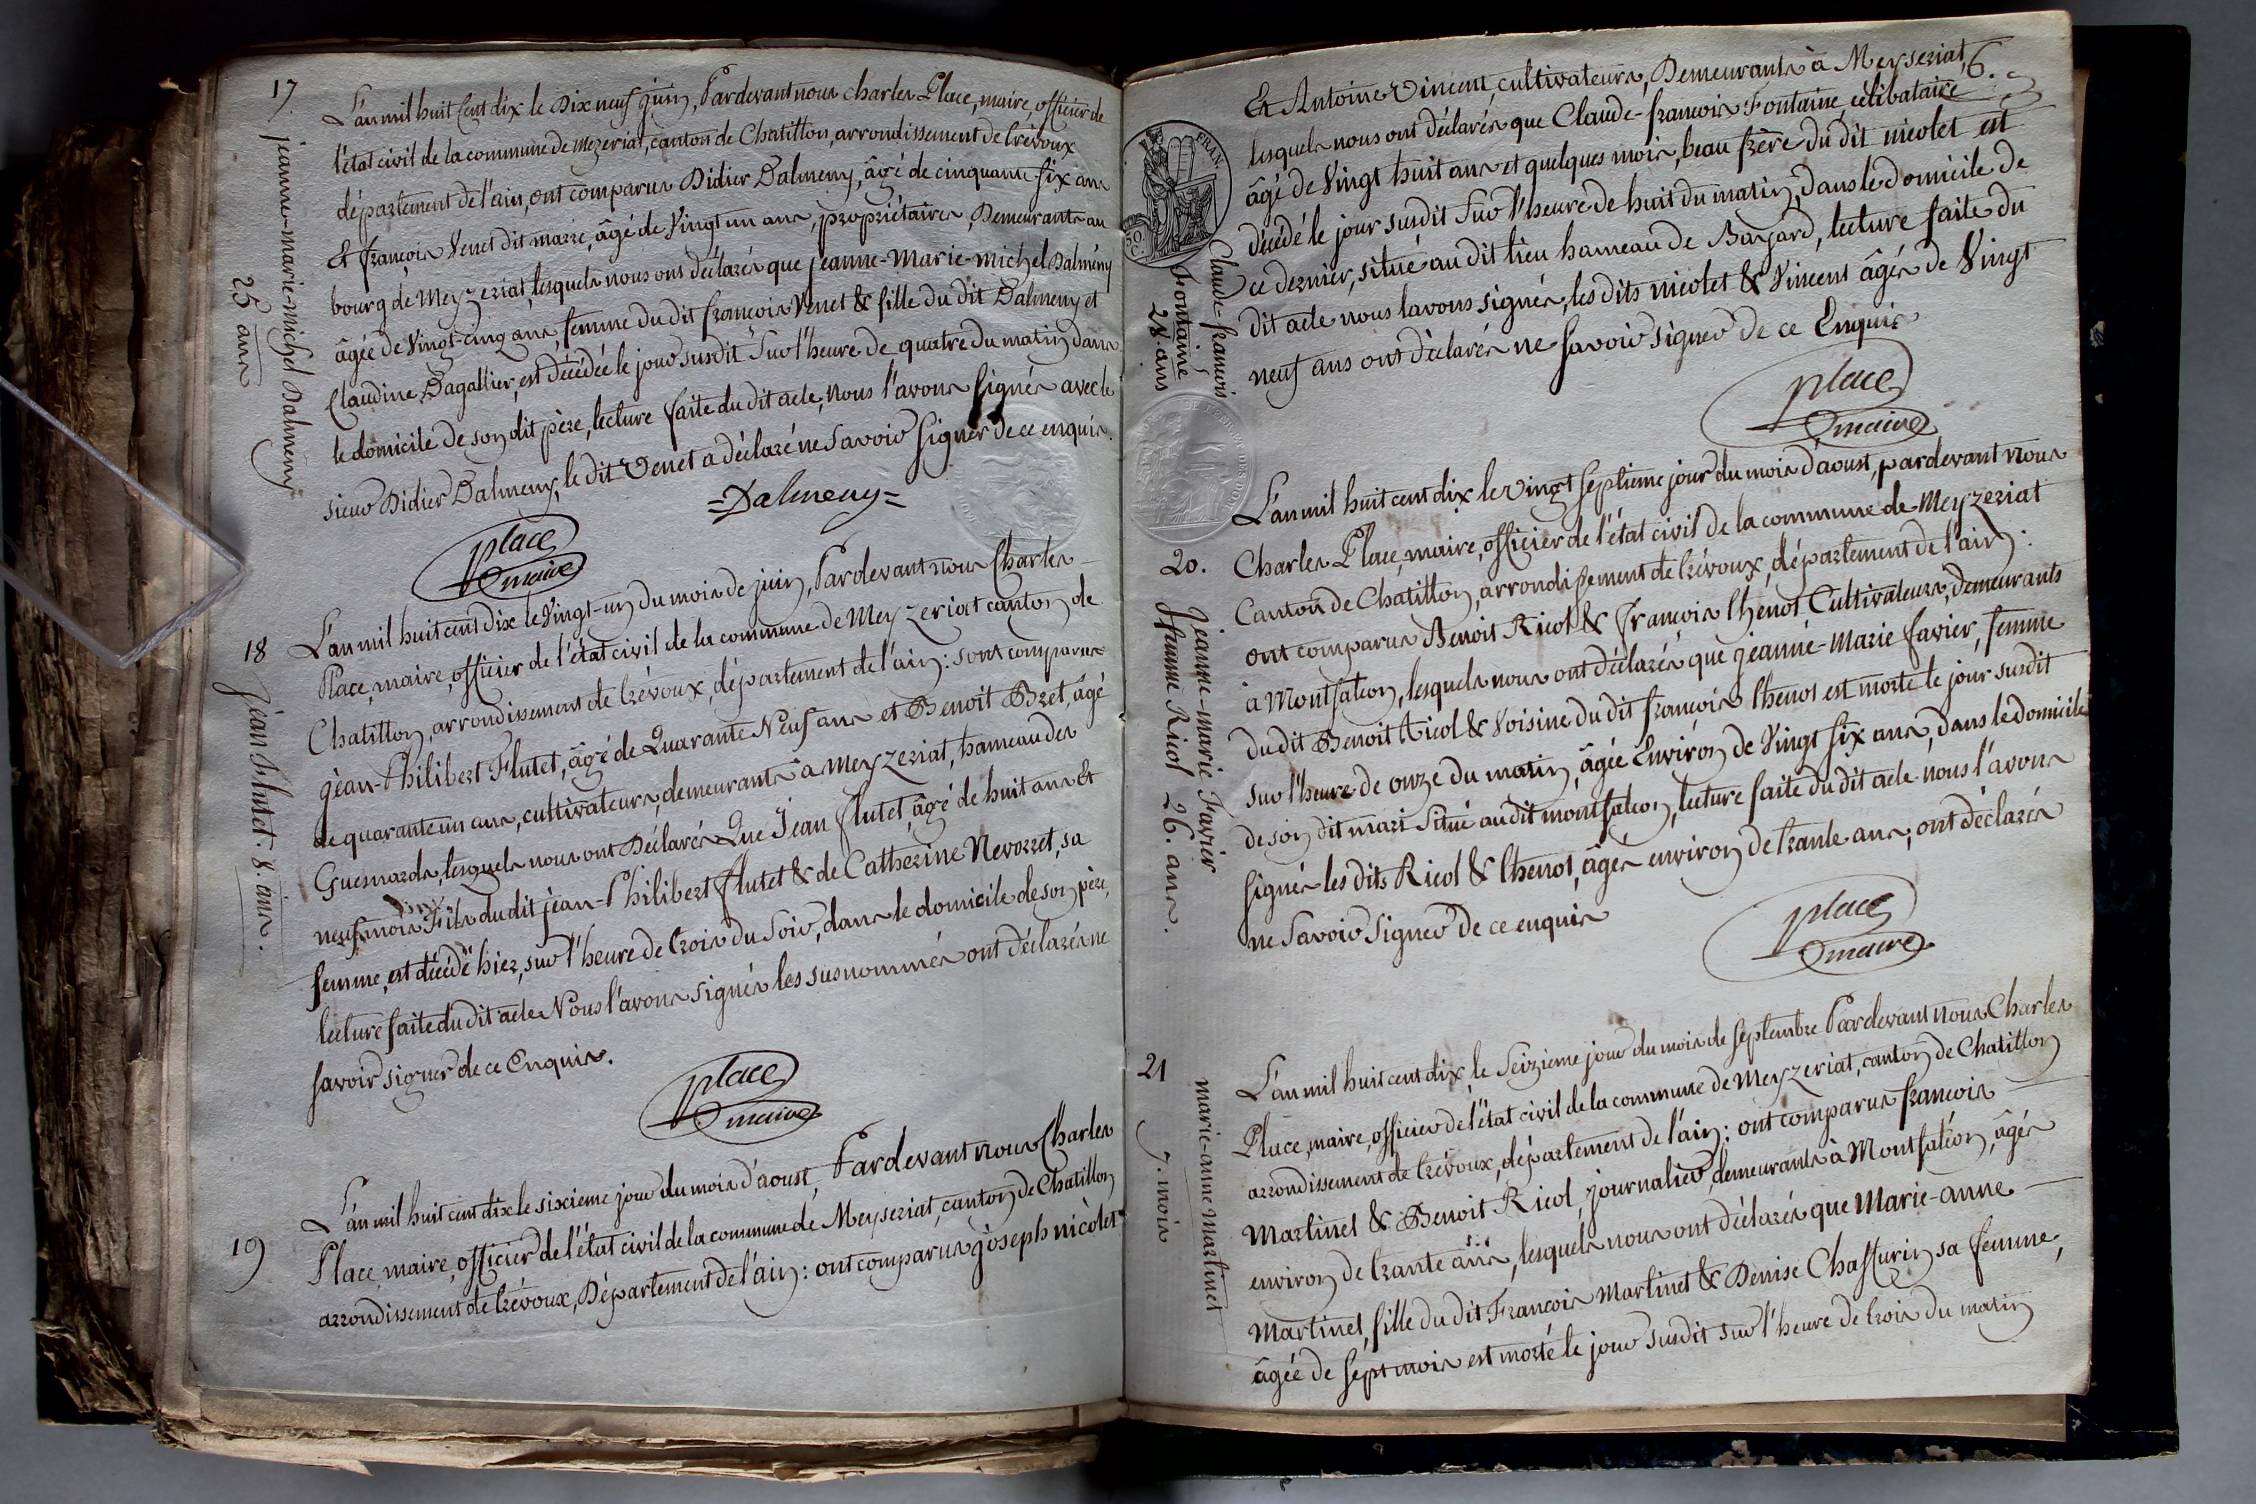 17
jeanne-marie-michel Dalmeny
25 ans
L'an mil huit cent dix le Dix neuf juin, Pardevant nous charles Place, maire, officier de
l'état civil de la commune de mezeriat, canton de Chatillon, arrondissement de trévoux
département de l'ain, ont comparus Didier Dalmeny, âgé de cinquante six ans
Et françois Venet dit mazzé, âgé de Vingt un ans, propriétaires, Demeurants au
bourg de Meyzeriat, lesquels nous ont déclarés que jeanne-Marie-michel Dalmény
âgée de Vingt-cinq ans, femme du dit françois Venet & fille du dit Dalmeny et
Claudine Dagallier, est décédée le jour susdit sur l'heure de quatre du matin dans
le domicile de son dit père, lecture faite du dit acte, nous l'avons signés avec le
sieur Didier Dalmeny, le dit Venet a déclaré ne savoir signer de ce enquis.
=Dalmeny=
place
maire
18
jean flutet. 8. ans.
L'an mil huit cent dix le Vingt-un du mois de juin, Pardevant nous Charles
Place, maire, officier de l'état civil de la commune de Meyzeriat canton de
Chatillon, arrondissement de trévoux, département de l'ain: sont comparus
jean-Philibert Flutet, âgé de Quarante Neuf ans et Benoit Bret, âgé
de quarante un ans, cultivateurs, demeurants à Meyzeriat, hameau des
Guesnards, lesquels nous ont Déclarés Que Jean flutet, âgé de huit ans Et
neuf mois Fils du dit jean-Philibert flutet & de Catherine Nevorret, sa
femme, est décédé hier, sur l'heure de trois du soir, dans le domicile de son père,
lecture faite du dit acte Nous l'avons signés les susnommés ont déclarés ne
savoir signer de ce Enquis.
place
maire
19
L'an mil huit cent dix le sixieme jour du mois d'aoust, Pardevant nous Charles
Place, maire, officier de l'état civil de la commune de Meyseriat, canton de Chatillon
arrondissement de trévoux, Département de l'ain: ont comparus joseph nicolet
6.
Et Antoine Vincent, cultivateurs, Demeurants à Meyseriat,
lesquels nous ont déclarés que Claude-françois Fontaine, célibataire
âgé de Vingt huit ans et quelques mois, beau frère du dit nicolet est
décédé le jour susdit sur l'heure de huit du matin, dans le domicile de
ce dernier, situé au dit lieu hameau de Bayard, lecture faite du
dit acte nous l'avons signés, les dits nicolet & Vincent âgés de Vingt
neuf ans ont déclarés ne savoir signer de ce Enquis
FRAN.
50
C.
Claude-françois
Fontaine
28. ans
place
maire
20.
Jeanne-marie Favier
femme Ricol 26. ans.
L'an mil huit cent dix le vingt septieme jour du mois d'aoust, pardevant nous
Charles Place, maire, officier de l'état civil de la commune de Meyzeriat
Canton de Chatillon, arrondissement de trévoux, département de l'ain:
ont comparus Benoit Ricol & françois thenot, Cultivateurs, demeurants
à Montfalcon, lesquels nous ont déclarés que jeanne-Marie favier, femme
du dit Benoit Ricol & voisine du dit françois thenot est morte le jour susdit
sur l'heure de onze du matin, âgée Environ de Vingt six ans, dans le domicile
de son dit mari situé au dit montfalcon, lecture faite du dit acte nous l'avons
signés les dits Ricol & thenot, âgés environ de trante ans, ont déclarés
ne savoir signer de ce enquis
place
maire
21
marie-anne Martinet
7. mois
L'an mil huit cent dix, le seizieme jour du mois de septembre Pardevant nous Charles
Place, maire, officier de l'état civil de la commune de Meyzeriat, canton de Chatillon
arrondissement de trévoux, département de l'ain: ont comparus françois
Martinet & Benoit Ricol, journalier, demeurants à Montfalcon, âgés
environ de trante ans, lesquels nous ont déclarés que Marie-anne
Martinet, fille du dit François Martinet & Denise Chaffurin sa femme,
âgée de sept mois est morte le jour susdit sur l'heure de trois du matin